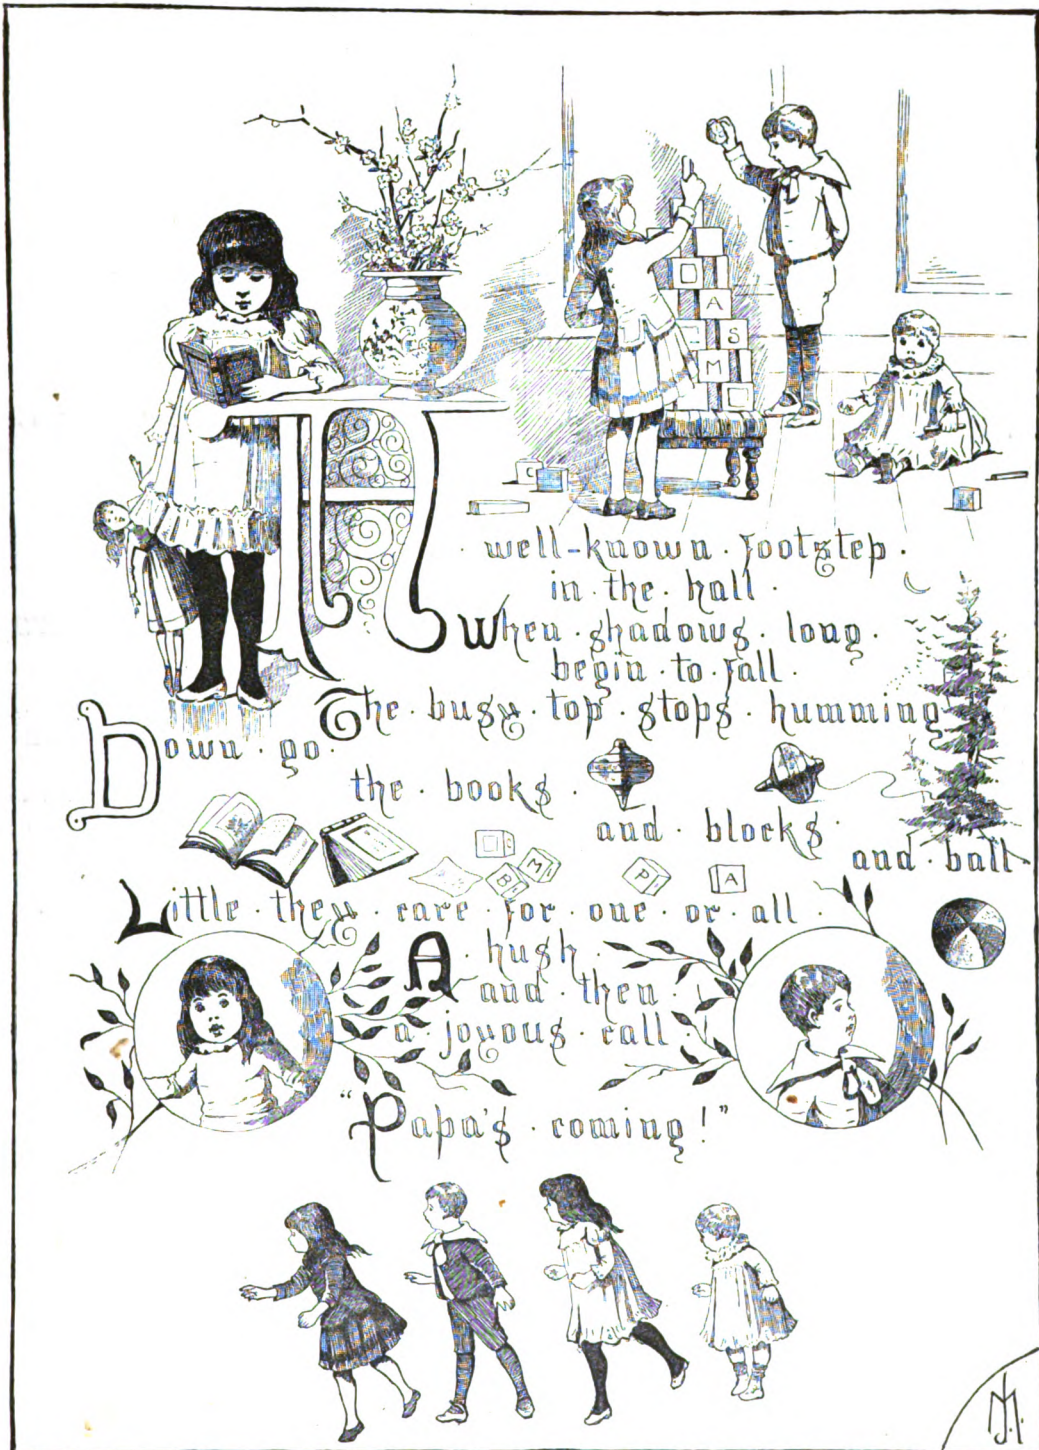 A
well-known · footstep ·
in · the · hall ·
When · shadows · long ·
begin · to · fall ·
The · busy · top · stops · humming
Down · go ·
the · books ·
and · blocks ·
and · ball
Little · they · care · for · one · or · all ·
A · hush ·
and · then ·
a · joyous · call ·
"Papa's · coming!"
O
A
S
M
C
B
M
P
A